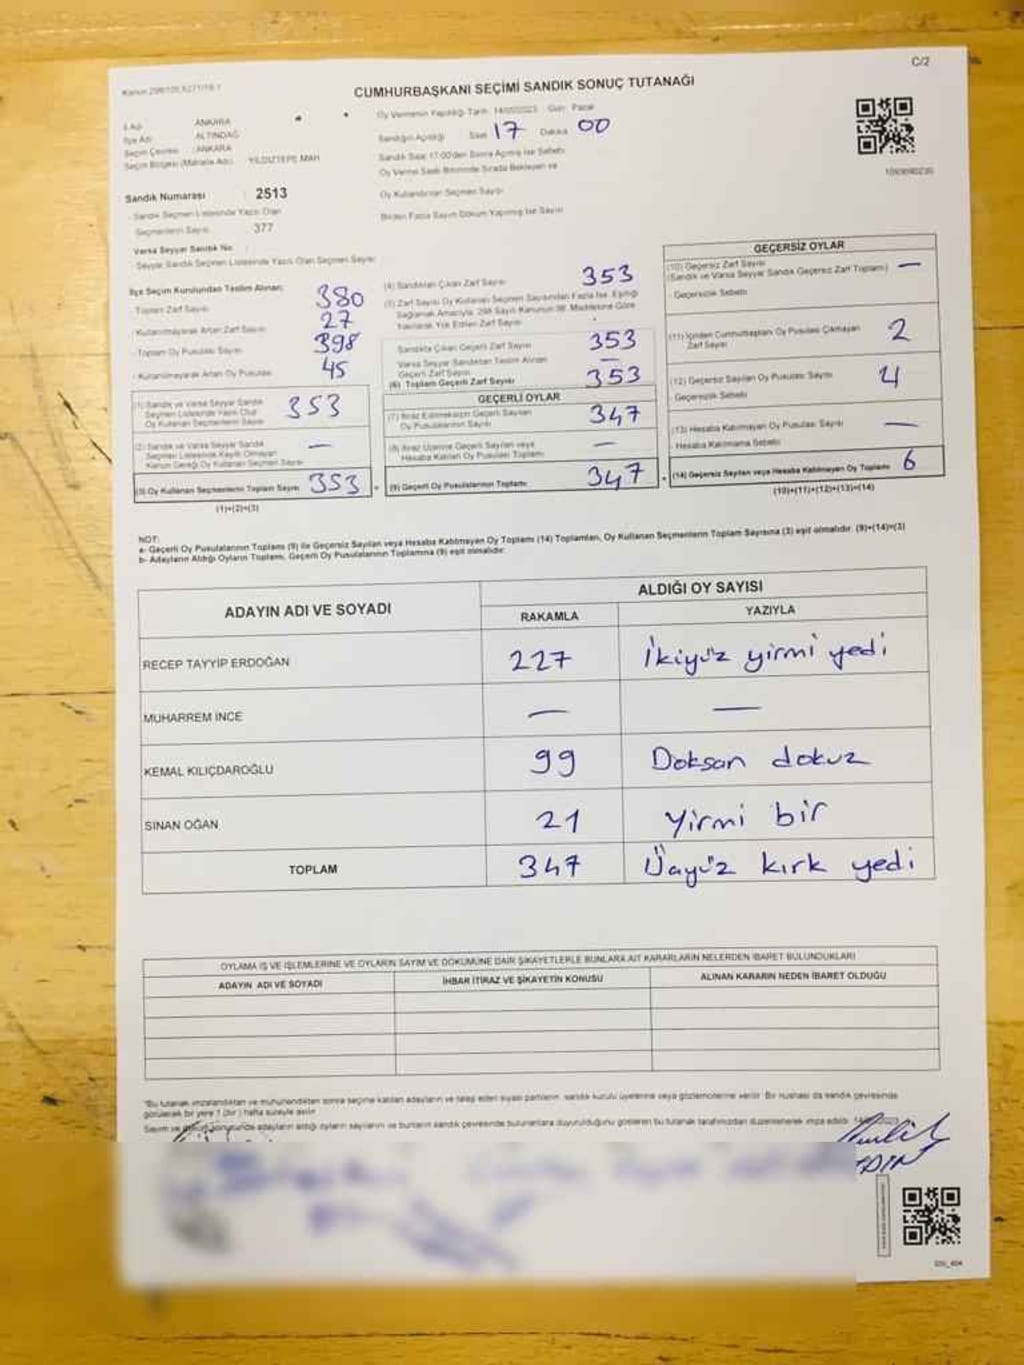 C/2
Kanun 298/105,6271/19.1
CUMHURBAŞKANI SEÇİMİ SANDIK SONUÇ TUTANAĞI
İl Adı ANKARA
İlçe Adı ALTINDAĞ
Seçim Çevresi ANKARA
Seçim Bölgesi (Mahalle Adı) YILDIZTEPE MAH
Sandık Numarası : 2513
- Sandık Seçmen Listesinde Yazılı Olan
Seçmenlerin Sayısı 377
Varsa Seyyar Sandık No :
- Seyyar Sandık Seçmen Listesinde Yazılı Olan Seçmen Sayısı
Oy Vermenin Yapıldığı Tarih 14/05/2023 Gün Pazar
Sandığın Açıldığı Saat 17 Dakika 00
Sandık Saat 17:00'den Sonra Açılmış İse Sebebi
Oy Verme Saati Bitiminde Sırada Bekleyen ve
Oy Kullandırılan Seçmen Sayısı
Birden Fazla Sayım Döküm Yapılmış İse Sayısı
İlçe Seçim Kurulundan Teslim Alınan;
- Toplam Zarf Sayısı 380
- Kullanılmayarak Artan Zarf Sayısı 27
- Toplam Oy Pusulası Sayısı 398
- Kullanılmayarak Artan Oy Pusulası 45
(1) Sandık ve Varsa Seyyar Sandık
Seçmen Listesinde Yazılı Olup
Oy Kullanan Seçmenlerin Sayısı 353
(2) Sandık ve Varsa Seyyar Sandık
Seçmen Listesinde Kayıtlı Olmayan
Kanun Gereği Oy Kullanan Seçmen Sayısı —
(3) Oy Kullanan Seçmenlerin Toplam Sayısı 353
(1)+(2)=(3)
(4) Sandıktan Çıkan Zarf Sayısı 353
(5) Zarf Sayısı Oy Kullanan Seçmen Sayısından Fazla İse, Eşitliği
Sağlamak Amacıyla, 298 Sayılı Kanunun 98. Maddesine Göre
Yakılarak Yok Edilen Zarf Sayısı
Sandıkta Çıkan Geçerli Zarf Sayısı 353
Varsa Seyyar Sandıktan Teslim Alınan
Geçerli Zarf Sayısı —
(6) Toplam Geçerli Zarf Sayısı 353
GEÇERLİ OYLAR
(7) İtiraz Edilmeksizin Geçerli Sayılan
Oy Pusulalarının Sayısı 347
(8) İtiraz Üzerine Geçerli Sayılan veya
Hesaba Katılan Oy Pusulası Toplamı —
(9) Geçerli Oy Pusulalarının Toplamı 347
GEÇERSİZ OYLAR
(10) Geçersiz Zarf Sayısı
(Sandık ve Varsa Seyyar Sandık Geçersiz Zarf Toplamı) —
- Geçersizlik Sebebi
(11) İçinden Cumhurbaşkanı Oy Pusulası Çıkmayan
Zarf Sayısı 2
(12) Geçersiz Sayılan Oy Pusulası Sayısı 4
- Geçersizlik Sebebi
(13) Hesaba Katılmayan Oy Pusulası Sayısı —
- Hesaba Katılmama Sebebi
(14) Geçersiz Sayılan veya Hesaba Katılmayan Oy Toplamı 6
(10)+(11)+(12)+(13)=(14)
NOT:
a- Geçerli Oy Pusulalarının Toplamı (9) ile Geçersiz Sayılan veya Hesaba Katılmayan Oy Toplamı (14) Toplamları, Oy Kullanan Seçmenlerin Toplam Sayısına (3) eşit olmalıdır. (9)+(14)=(3)
b- Adayların Aldığı Oyların Toplamı, Geçerli Oy Pusulalarının Toplamına (9) eşit olmalıdır.
ADAYIN ADI VE SOYADI
ALDIĞI OY SAYISI
RAKAMLA YAZIYLA
RECEP TAYYİP ERDOĞAN 227 İkiyüz yirmi yedi
MUHARREM İNCE — —
KEMAL KILIÇDAROĞLU 99 Doksan dokuz
SİNAN OĞAN 21 Yirmi bir
TOPLAM 347 Üçyüz kırk yedi
OYLAMA İŞ VE İŞLEMLERİNE VE OYLARIN SAYIM VE DÖKÜMÜNE DAİR ŞİKAYETLERLE BUNLARA AİT KARARLARIN NELERDEN İBARET BULUNDUKLARI
ADAYIN ADI VE SOYADI İHBAR İTİRAZ VE ŞİKAYETİN KONUSU ALINAN KARARIN NEDEN İBARET OLDUĞU
"Bu tutanak imzalandıktan ve mühürlendikten sonra seçime katılan adayların ve talep eden siyasi partilerin, sandık kurulu üyelerine veya gözlemcilerine verilir. Bir nüshası da sandık çevresinde
görülecek bir yere 1 (bir) hafta süreyle asılır.